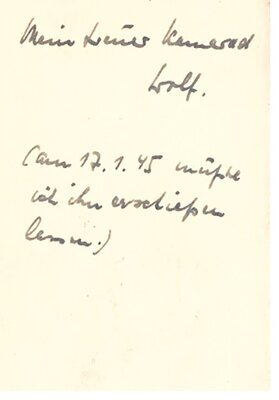 Mein treuer Kamerad
Wolf.
(am 17.1.45 mußte
ich ihn erschießen
lassen.)